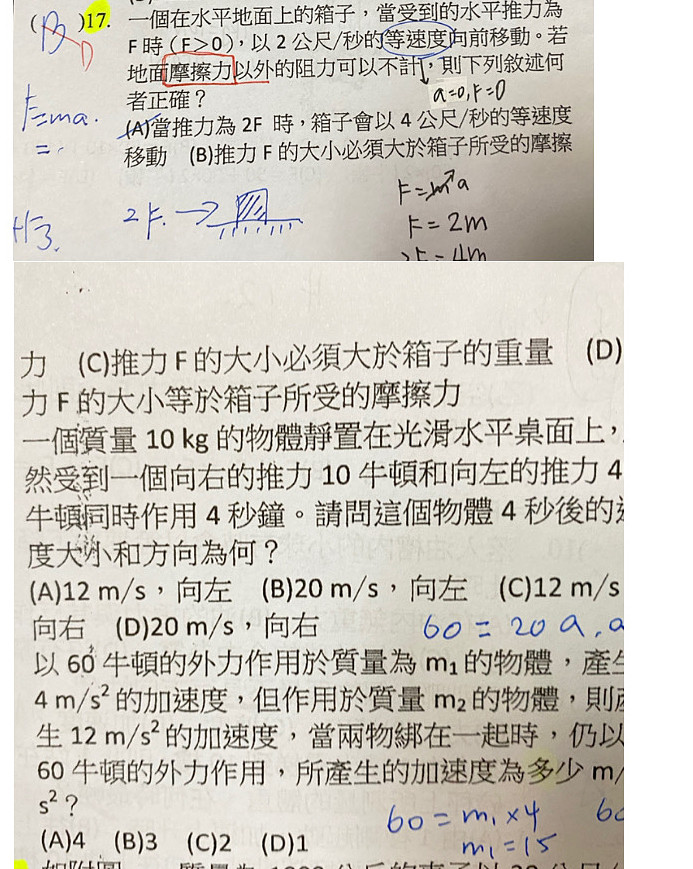 (B)17. 一個在水平地面上的箱子，當受到的水平推力為
D
F 時（F＞0），以 2 公尺/秒的等速度向前移動。若
地面摩擦力以外的阻力可以不計，則下列敘述何
者正確？
a=0, F=0
F=ma.
(A)當推力為 2F 時，箱子會以 4 公尺/秒的等速度
移動 (B)推力 F 的大小必須大於箱子所受的摩擦
F=ma
2F.
F=2m
2F=4m
力 (C)推力 F 的大小必須大於箱子的重量 (D)
力 F 的大小等於箱子所受的摩擦力
一個質量 10 kg 的物體靜置在光滑水平桌面上，
然受到一個向右的推力 10 牛頓和向左的推力 4
牛頓同時作用 4 秒鐘。請問這個物體 4 秒後的
度大小和方向為何？
(A)12 m/s，向左 (B)20 m/s，向左 (C)12 m/s
向右 (D)20 m/s，向右
60=20a, a
以 60 牛頓的外力作用於質量為 m₁ 的物體，產生
4 m/s² 的加速度，但作用於質量 m₂ 的物體，則產
生 12 m/s² 的加速度，當兩物綁在一起時，仍以
60 牛頓的外力作用，所產生的加速度為多少 m/
s²？
60=m₁×4
60
(A)4 (B)3 (C)2 (D)1
m₁=15